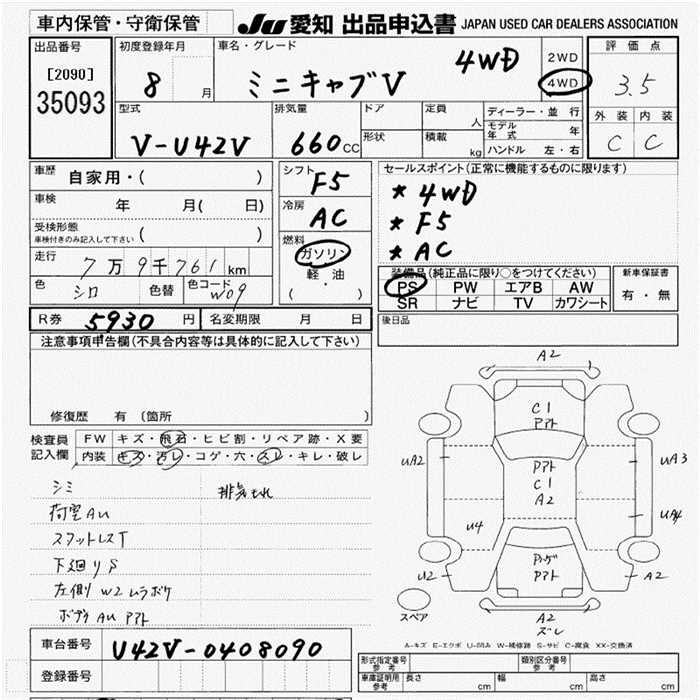 車内保管・守衛保管 JU 愛知 出品申込書 JAPAN USED CAR DEALERS ASSOCIATION
出品番号
[2090]
35093
初度登録年月
8 月
車名・グレード
ミニキャブV 4WD
2WD
4WD
評価点
3.5
外装 内装
C C
型式
V-U42V
排気量
660 CC
ドア
形状
定員 人
積載 kg
ディーラー・並行
モデル年式 年
ハンドル 左・右
車歴 自家用・( )
車検 年 月( 日)
受検形態
車検付きのみ記入して下さい ( )
走行 7万9千761km
色 シロ 色替 色コード W09
シフト
F5
冷房
AC
燃料
ガソリン
軽・油
( ・ )
セールスポイント(正常に機能するものに限ります)
* 4WD
* F5
* AC
装備品(純正品に限り○をつけてください)
PS PW エアB AW
SR ナビ TV カワシート
新車保証書
有・無
R券 5930 円 名変期限 月 日
後日品
注意事項申告欄(不具合内容等は具体的に記入して下さい)
修復歴 有(箇所 )
検査員記入欄
FW キズ・飛石・ヒビ割・リペア跡・X要
内装 キズ・汚レ・コゲ・穴・スレ・キレ・破レ
シミ 排気もれ
荷室AU
スフットレスT
下廻りS
左側W2ムラボケ
ボディAU アアト
A2
C1
アアト
アアト
C1
A2
UA2
UA3
U4
UA4
U2
A2
アアト
A2
ズレ
スペア
A-キズ E-エクボ U-凹み W-補修跡 S-サビ C-腐食 XX-交換済
車台番号 U42V-0408090
登録番号
形式指定番号 参考
類別区分番号 参考
車庫証明用 参考 長さ cm 幅 cm 高さ cm